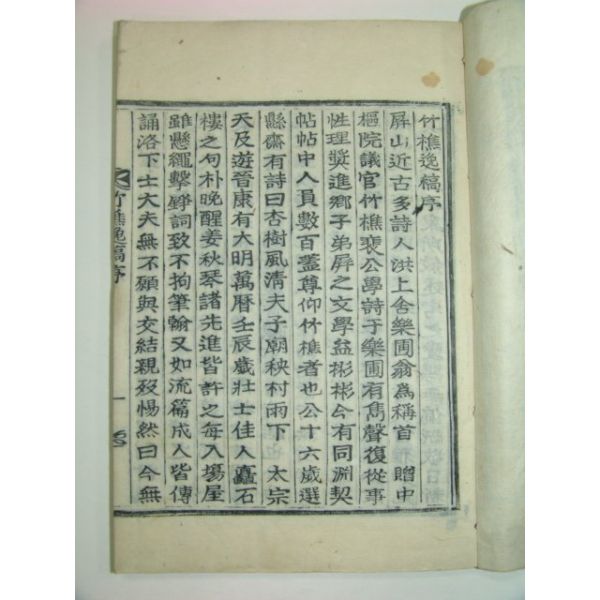 竹樵逸稿序
屛山近古多詩人洪上舍樂圃翁爲稱首 贈中
樞院議官竹樵裵公學詩于樂圃有雋聲復從事
性理奬進鄉子弟屛之文學益彬彬今有同淵契
帖帖中人員數百蓋尊仰竹樵者也公十六歲選
縣齋有詩曰杏樹風清夫子廟秧村雨下 太宗
天及遊晉康有大明萬曆壬辰歲壯士佳人矗石
樓之句朴晚醒姜秋琴諸先進皆許之每入場屋
雖懸繩擊錚詞致不拘筆翰又如流篇成人皆傳
誦洛下士大夫無不願與交結親歿惕然曰今無
竹樵逸稿序
一